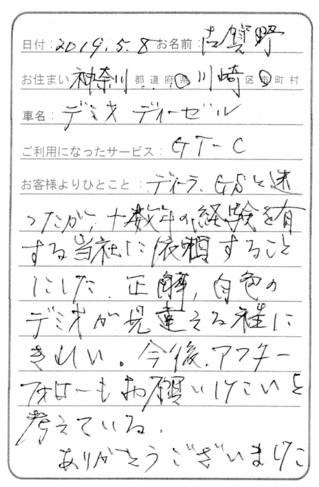 日付：2019.5.8 お名前：古賀野
お住まい 神奈川 都道府県 川崎 区市町村
車名：デミオ ディーゼル
ご利用になったサービス：GT-C
お客様よりひとこと：ディーラ、GSと迷
ったが、十数年の経験を有
する当社に依頼すること
にした。正解、白色の
デミオが見違える程に
きれい。今後、アフター
フォローもお願いしたいと
考えている。
ありがとうございました